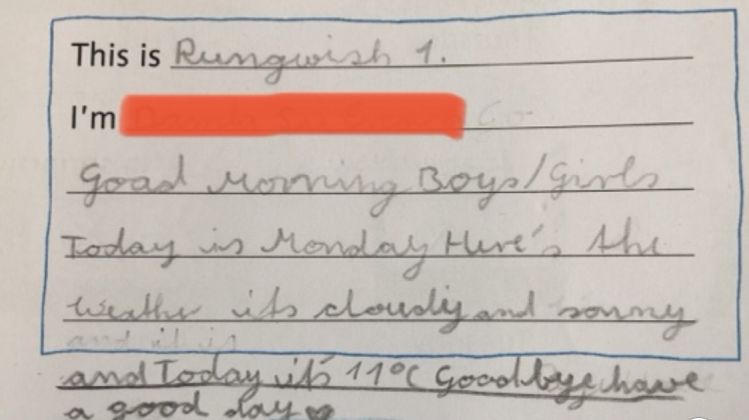 This is Rungwish 1.
I'm
Goad Morning Boys/Girls
Today is Monday Here's the
weather its cloudy and sonny
and it is
and Today it's 11°C Goodbye have
a good day